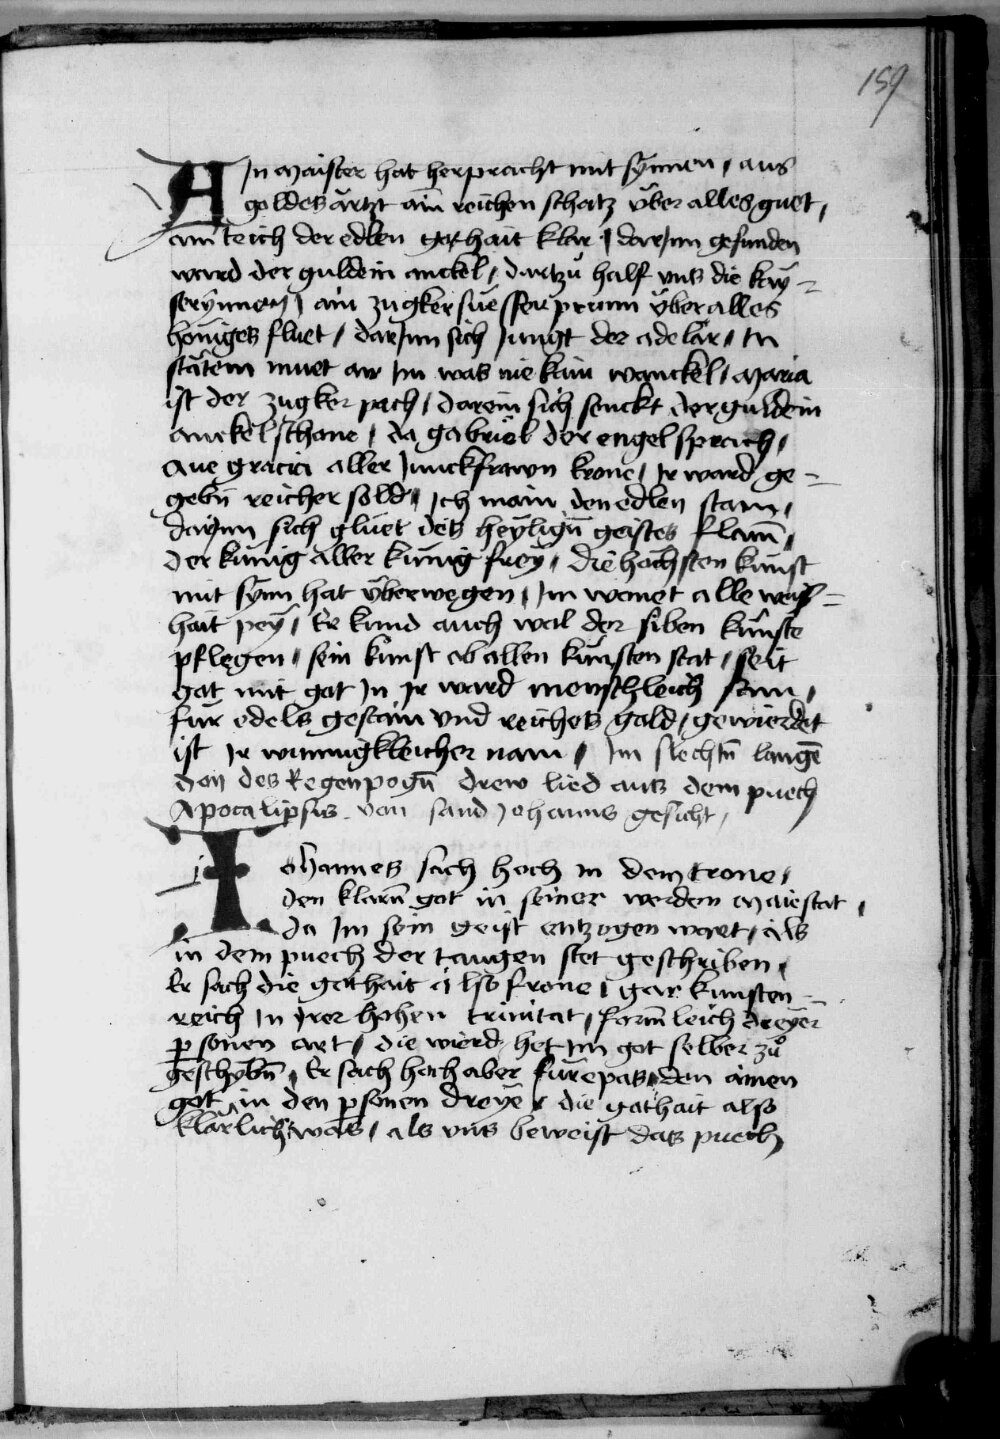 159
AIn maister hat herpracht mit synnen / aus
goldes ärtzt ain reichen schatz über alles guet /
ain teich der edlen gothait klar / darJnn gefunden
ward der guldein anckel / dartzu half vns die kay=
serynnen / ain zugker suesser prunn über alles
höniges fluet / darJnn sich Jungt der adelar / In
stätem muet an Im was nie kain wanckel / Maria
ist der zugker pach / darein sich senckt der guldein
anckel schone / da gabriel der engel sprach /
aue gracia aller Junckfrawn krone / Ir ward ge=
gebn̄ reicher sold / Ich main den edlen stam /
darJnn sich glüet des heylign̄ geistes flam̄ /
der künig aller künig frey / die höchsten kunst
mit synn hat überwegen / Im wonet alle weis=
hait pey / Er kund auch wol der siben künste
pflegen / sein kunst ob allen künsten stat / seit
got mit got In Ir ward menschleich sam /
für edels gestain vnd reiches gold / gewierdet
ist Ir wunnigkleicher nam / Im slechtn̄ langē
don des Regenpogn̄ drew lied aus dem puech
Apocalipsis von sand Johanns gesicht /
IOhannes sach hoch in dem trone /
den klarn̄ got in seiner werden Maiestat /
da Im sein geist entzogen wart / als
in dem puech der taugen stet geschriben /
Er sach die gothait also frone / gar kunsten=
reich In Irer hohen trinitat / formleich dreyer
ꝑsonen art / die wierd het Im got selber zů
geschybn̄ / Er sach hoch aber fürepas / den ainen
got in den ꝑsonen dreye / die gothait also
klärlich was / als vns beweist das puech